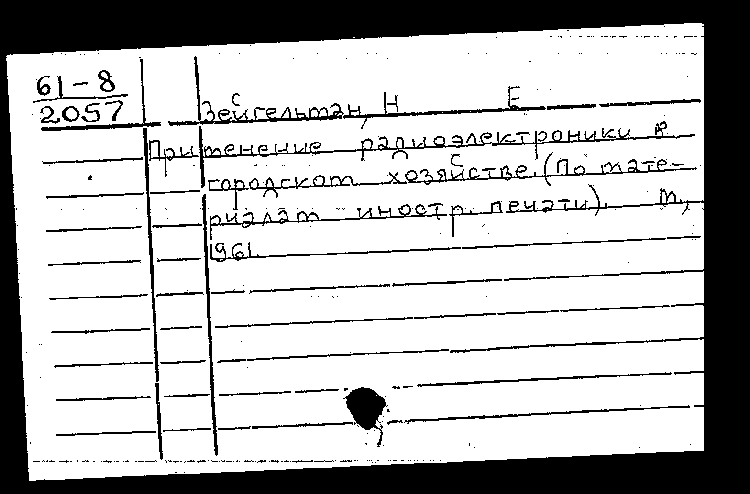 61-8
2057
Зейгельман, Н Е
Применение радиоэлектроники в
городском хозяйстве. (По мате-
риалам иностр. печати). М.,
1961.